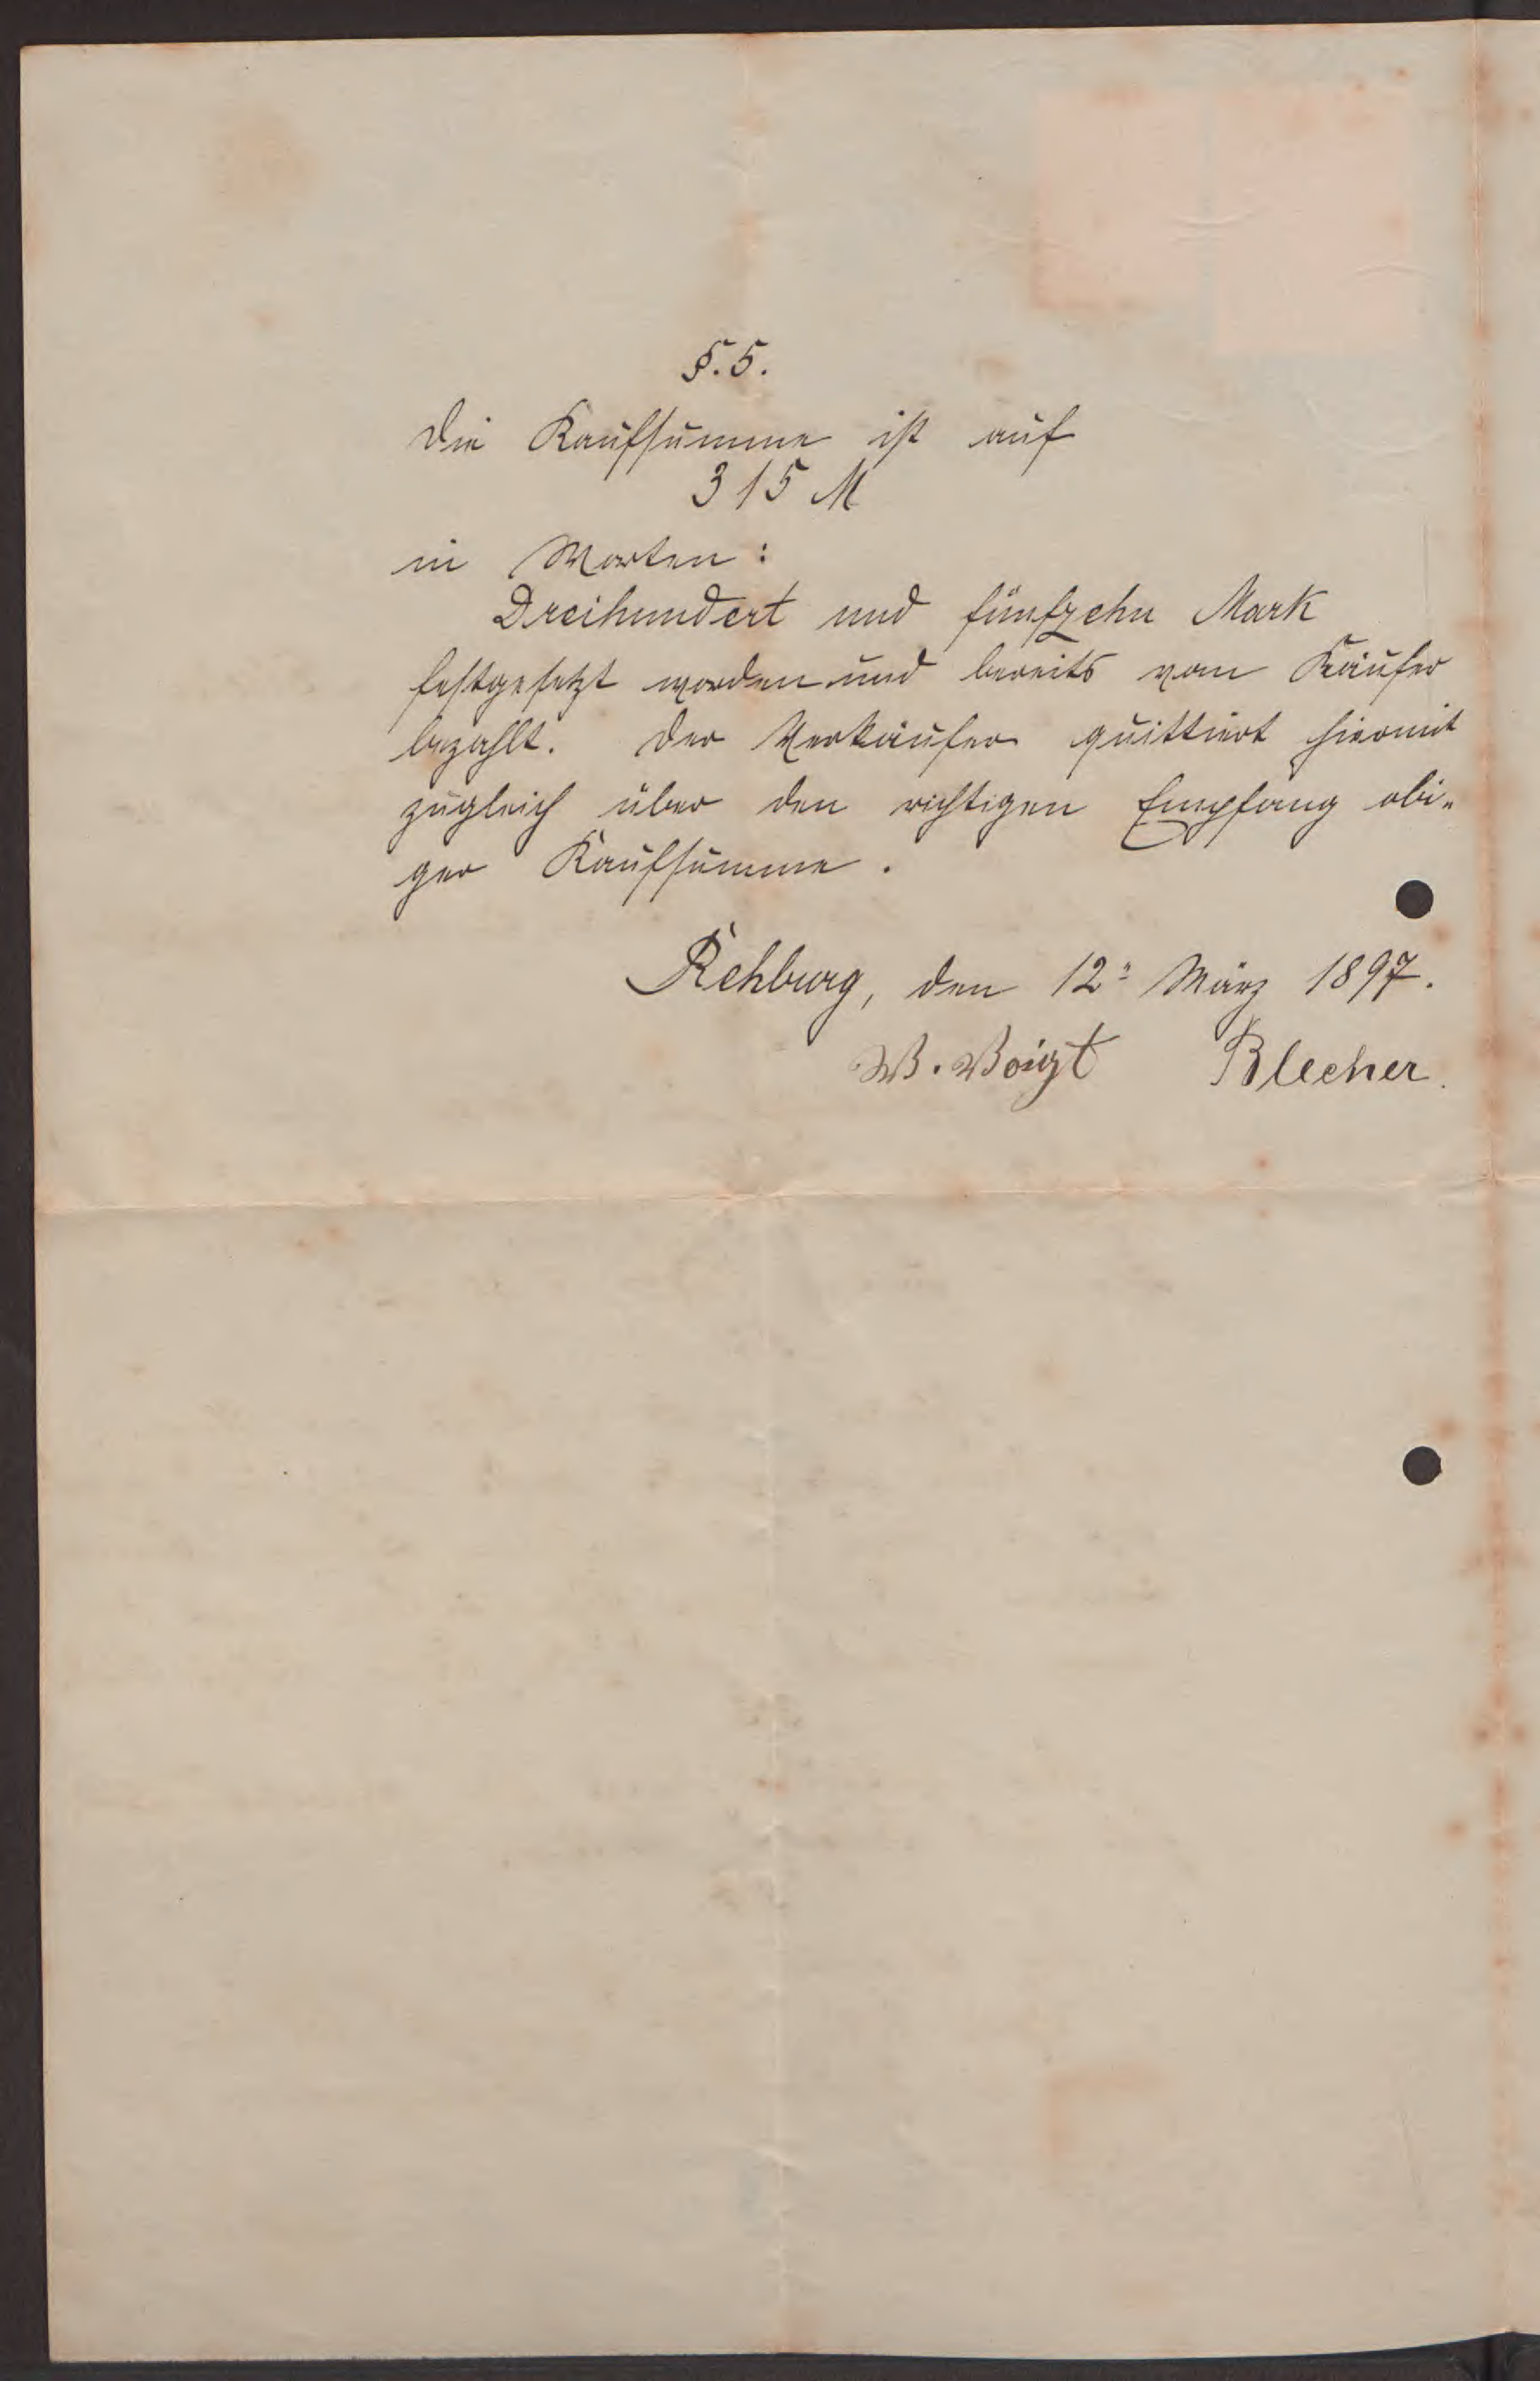 §. 5.
Die Kaufsumme ist auf
315 M
in Worten:
Dreihundert und fünfzehn Mark
festgesetzt worden und bereits vom Käufer
bezahlt. Der Verkäufer quittiert hiermit
zugleich über den richtigen Empfang obi-
ger Kaufsumme.
Rehburg, den 12= März 1897.
W. Voigt Blecher.